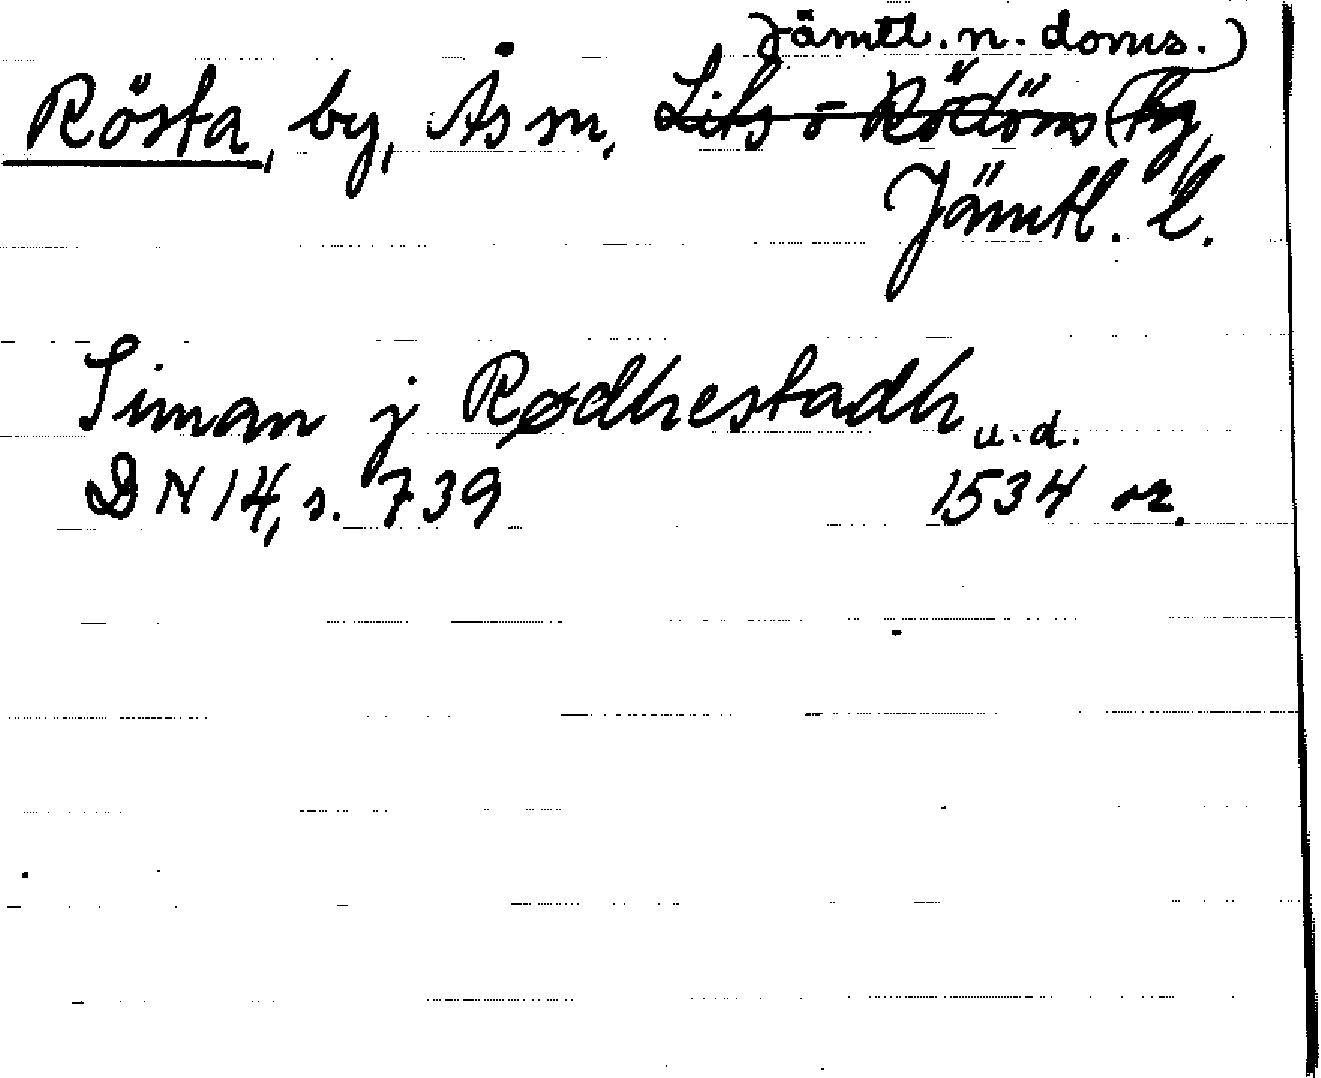 Jämtl. n. doms.
Rösta, by, Ås sn, Lits o Rödöns tg,
Jämtl. l.
Siman j Rødhestadh u.d.
DN 14, s. 739 1534 or.